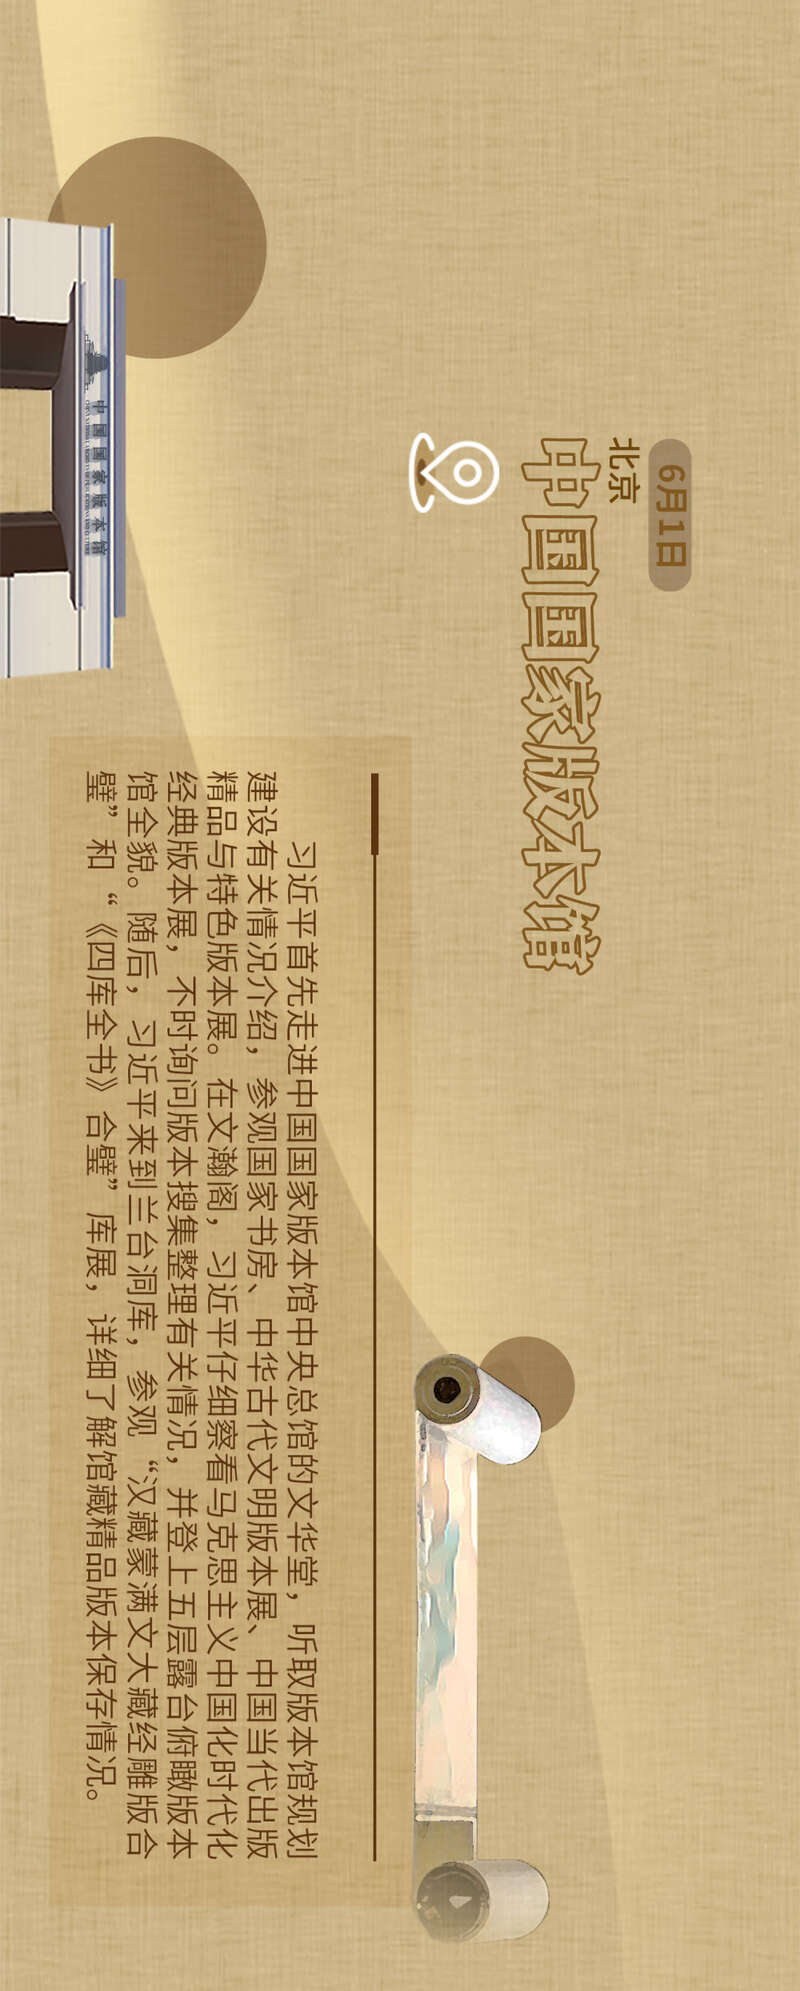 6月1日
北京
中国国家版本馆
习近平首先走进中国国家版本馆中央总馆的文华堂，听取版本馆规划
建设有关情况介绍，参观国家书房、中华古代文明版本展、中国当代出版
精品与特色版本展。在文瀚阁，习近平仔细察看马克思主义中国化时代化
经典版本展，不时询问版本搜集整理有关情况，并登上五层露台俯瞰版本
馆全貌。随后，习近平来到兰台洞库，参观“汉藏蒙满文大藏经雕版合
璧”和“《四库全书》合璧”库展，详细了解馆藏精品版本保存情况。
中国国家版本馆